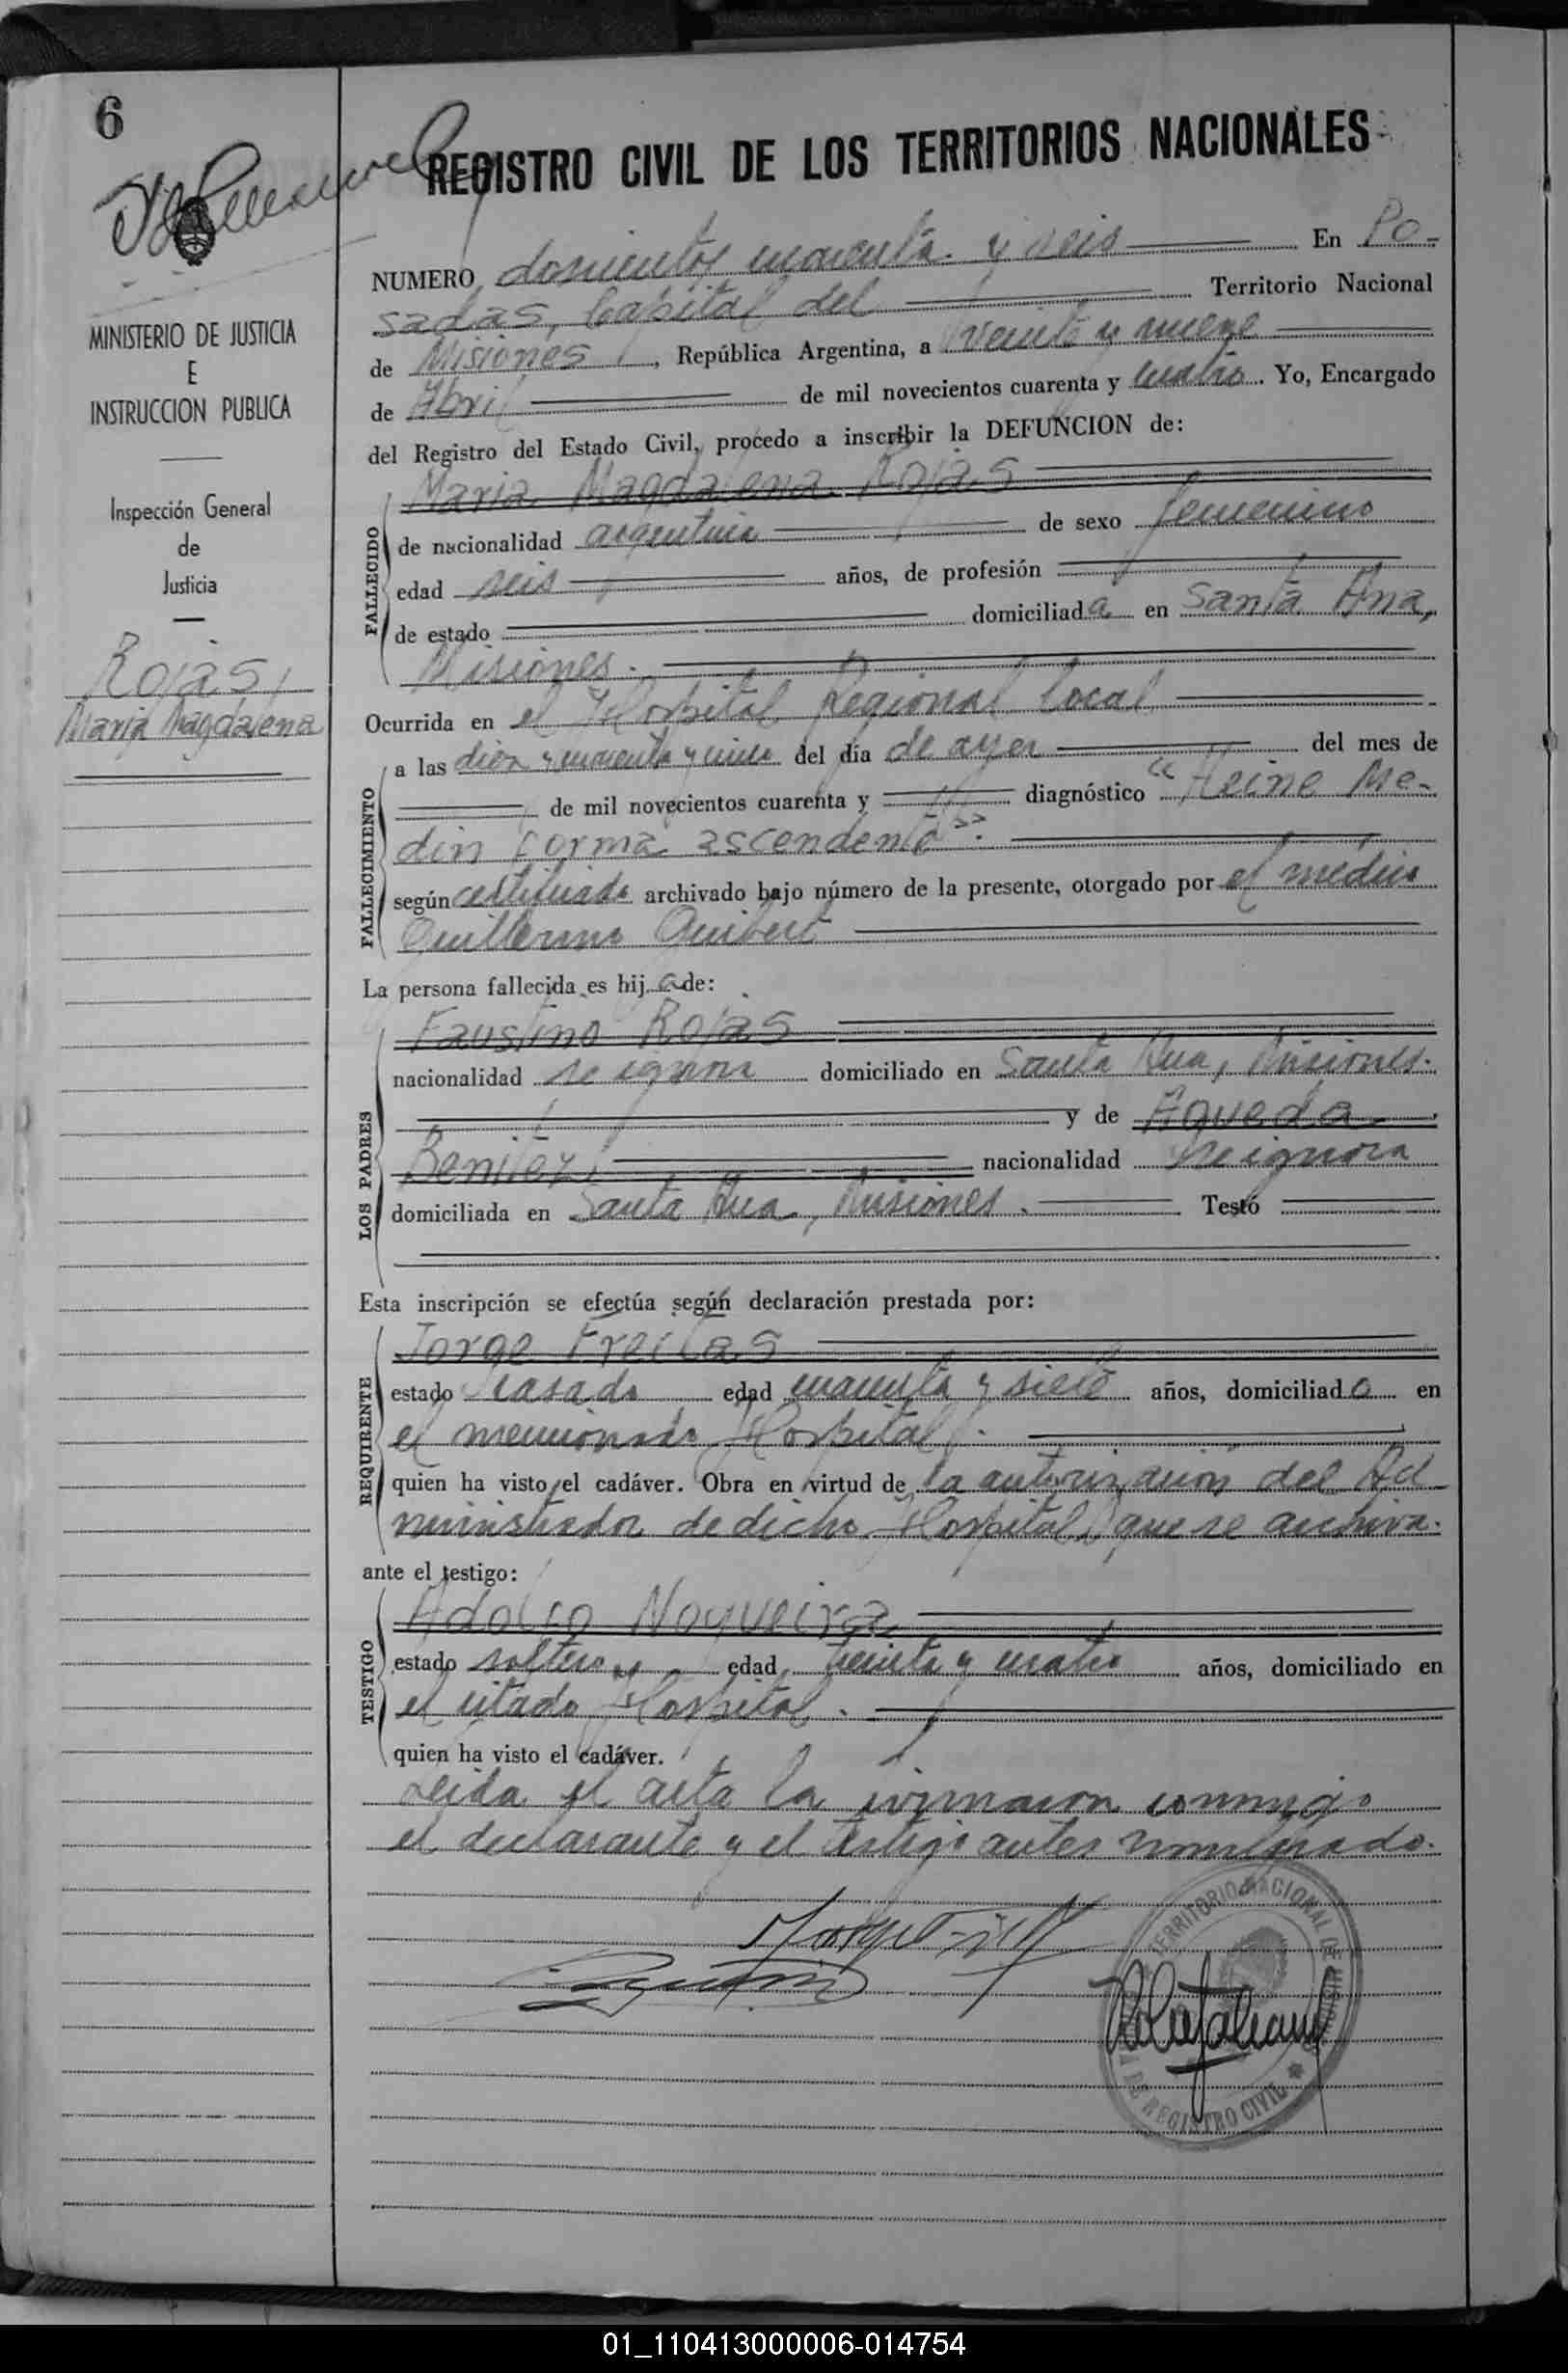 6
REGISTRO CIVIL DE LOS TERRITORIOS NACIONALES
MINISTERIO DE JUSTICIA
E
INSTRUCCION PUBLICA
Inspección General
de
Justicia
Rojas,
Maria Magdalena
NUMERO doscientos cuarenta y seis En Po-
sadas, Capital del Territorio Nacional
de Misiones, República Argentina, a veinte y nueve
de Abril de mil novecientos cuarenta y cuatro. Yo, Encargado
del Registro del Estado Civil, procedo a inscribir la DEFUNCION de:
Maria Magdalena Rojas
FALLECIDO
de nacionalidad argentina de sexo femenino
edad seis años, de profesión
de estado domiciliada en Santa Ana,
Misiones.
Ocurrida en el Hospital Regional local
FALLECIMIENTO
a las diez y cuarenta y cinco del día de ayer del mes de
de mil novecientos cuarenta y diagnóstico "Heine Me-
din forma ascendente".
según certificado archivado bajo número de la presente, otorgado por el médico
Guillermo Guibert
La persona fallecida es hija de:
LOS PADRES
Faustino Rojas
nacionalidad se ignora domiciliado en Santa Ana, Misiones.
y de Agueda
Benitez, nacionalidad se ignora
domiciliada en Santa Ana, Misiones. Testó
Esta inscripción se efectúa según declaración prestada por:
REQUIRENTE
Jorge Freitas
estado casado edad cuarenta y siete años, domiciliado en
el mencionado Hospital.
quien ha visto el cadáver. Obra en virtud de la autorización del Ad
ministrador de dicho Hospital, que se archiva.
ante el testigo:
TESTIGO
Adolfo Nogueira
estado soltero edad treinta y cuatro años, domiciliado en
el citado Hospital.
quien ha visto el cadáver.
Leida el acta la firmaron conmigo
el declarante y el testigo antes nombrado.
TERRITORIO NACIONAL DE MISIONES
DE REGISTRO CIVIL
01_110413000006-014754